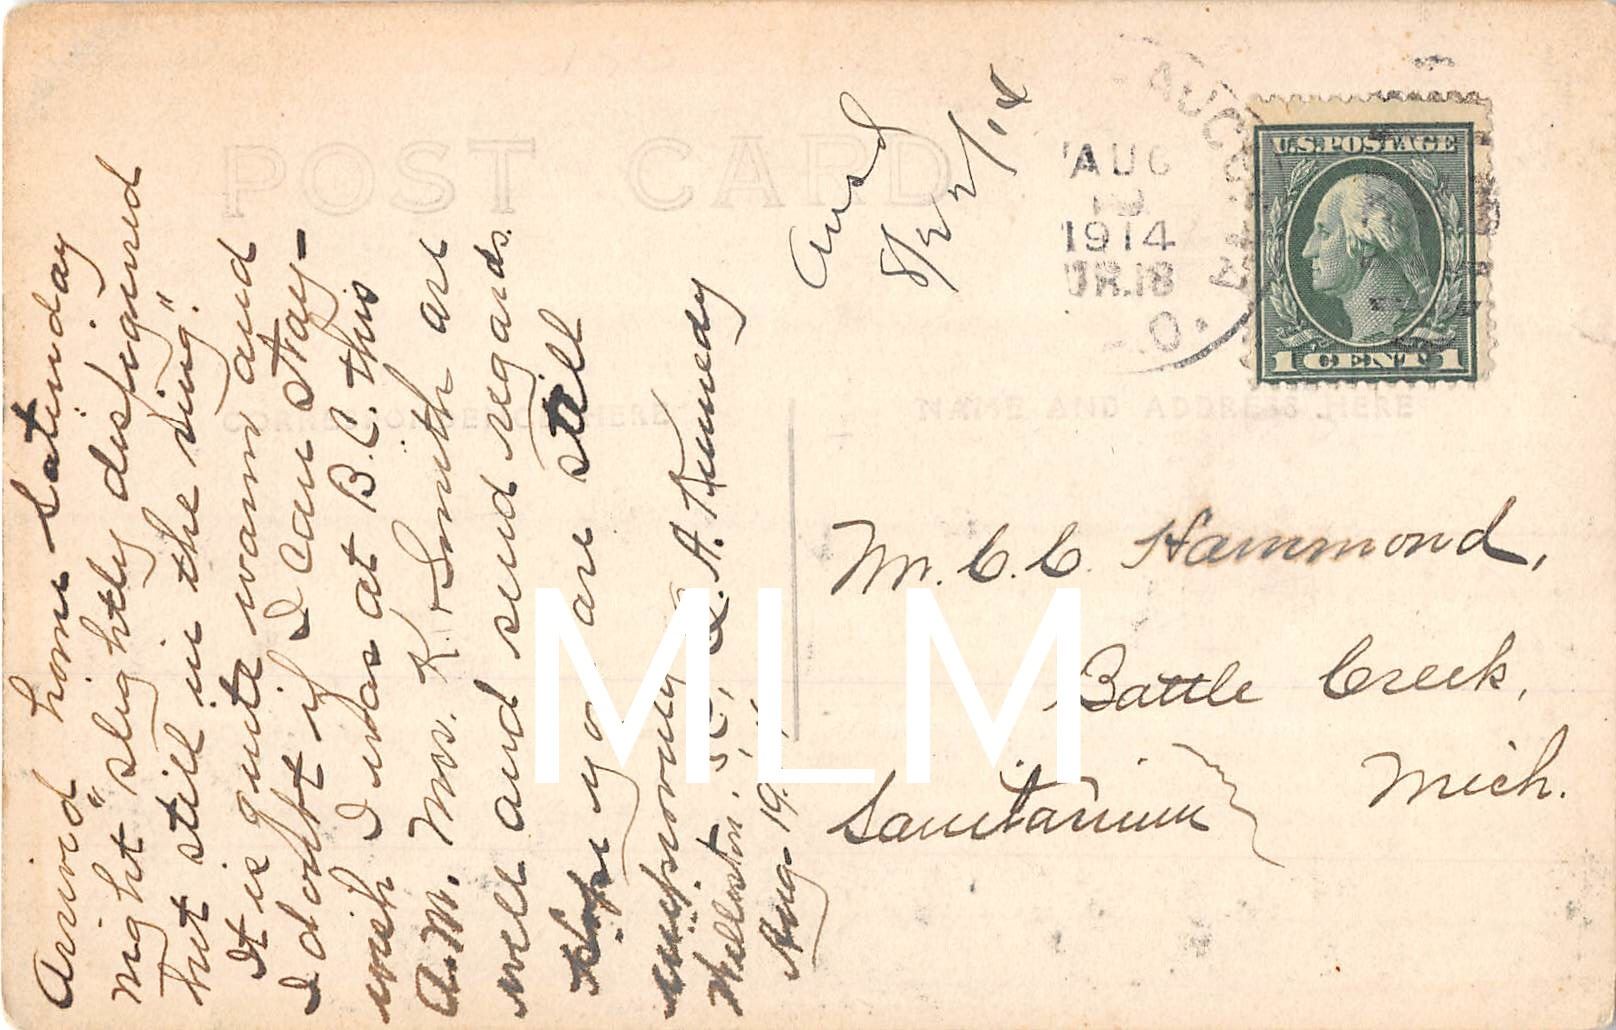 POST CARD
CORRESPONDENCE HERE
NAME AND ADDRESS HERE
Arived home Saturday
night "slightly disfigured
but still in the ring."
It is quite warm and
I doubt if I can stay-
wish I was at B.C. this
A.M. Mrs. K. & Smith are
well and send regards.
Hope you are still
improving A. Kennedy
Williston, S.C.,
Aug. 19,
Ansd
8/22/14
AUG
19
1914
U.S.POSTAGE
1 CENT 1
Mr. C. C. Hammond,
Battle Creek,
Mich.
Sanitarium
MLM